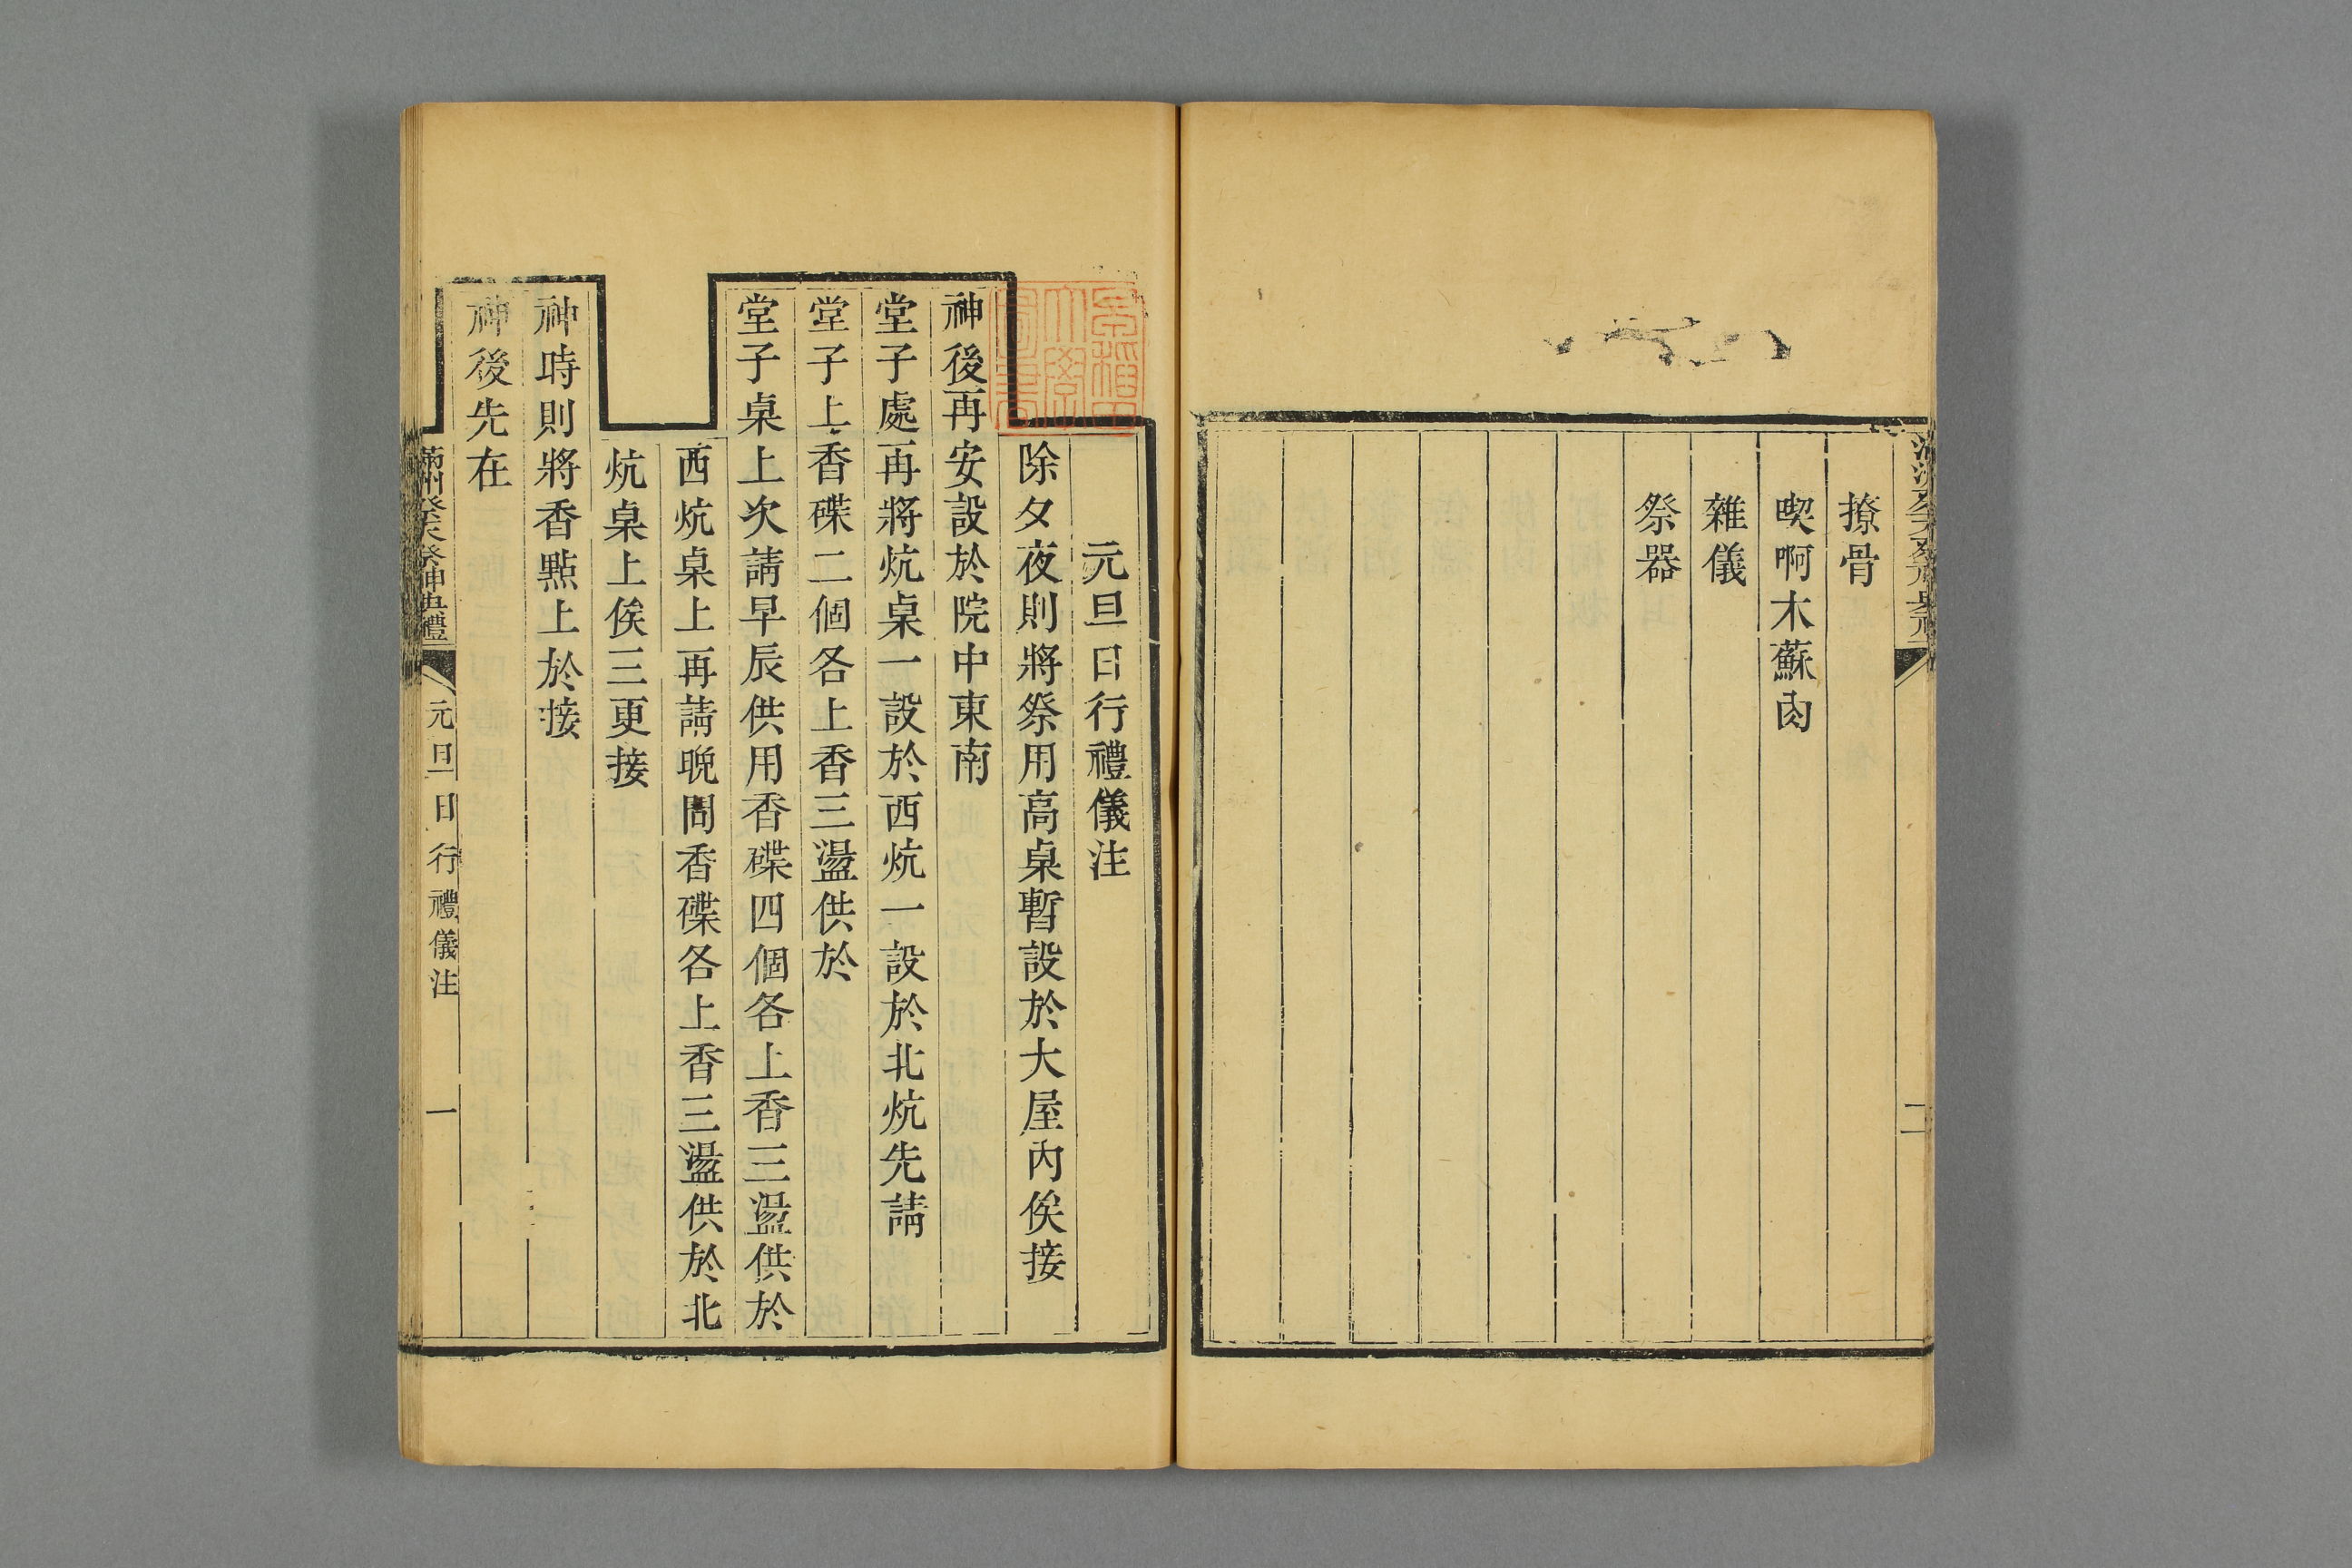 撩骨
喫啊木蘇肉
雜儀
祭器
二
元旦日行禮儀注
除夕夜則將祭用高桌暫設於大屋內俟接
神後再安設於院中東南
堂子處再將炕桌一設於西炕一設於北炕先請
堂子上香碟二個各上香三盪供於
堂子桌上次請早辰供用香碟四個各上香三盪供於
西炕桌上再請晚間香碟各上香三盪供於北
炕桌上俟三更接
神時則將香點上於接
神後先在
元旦日行禮儀注
一